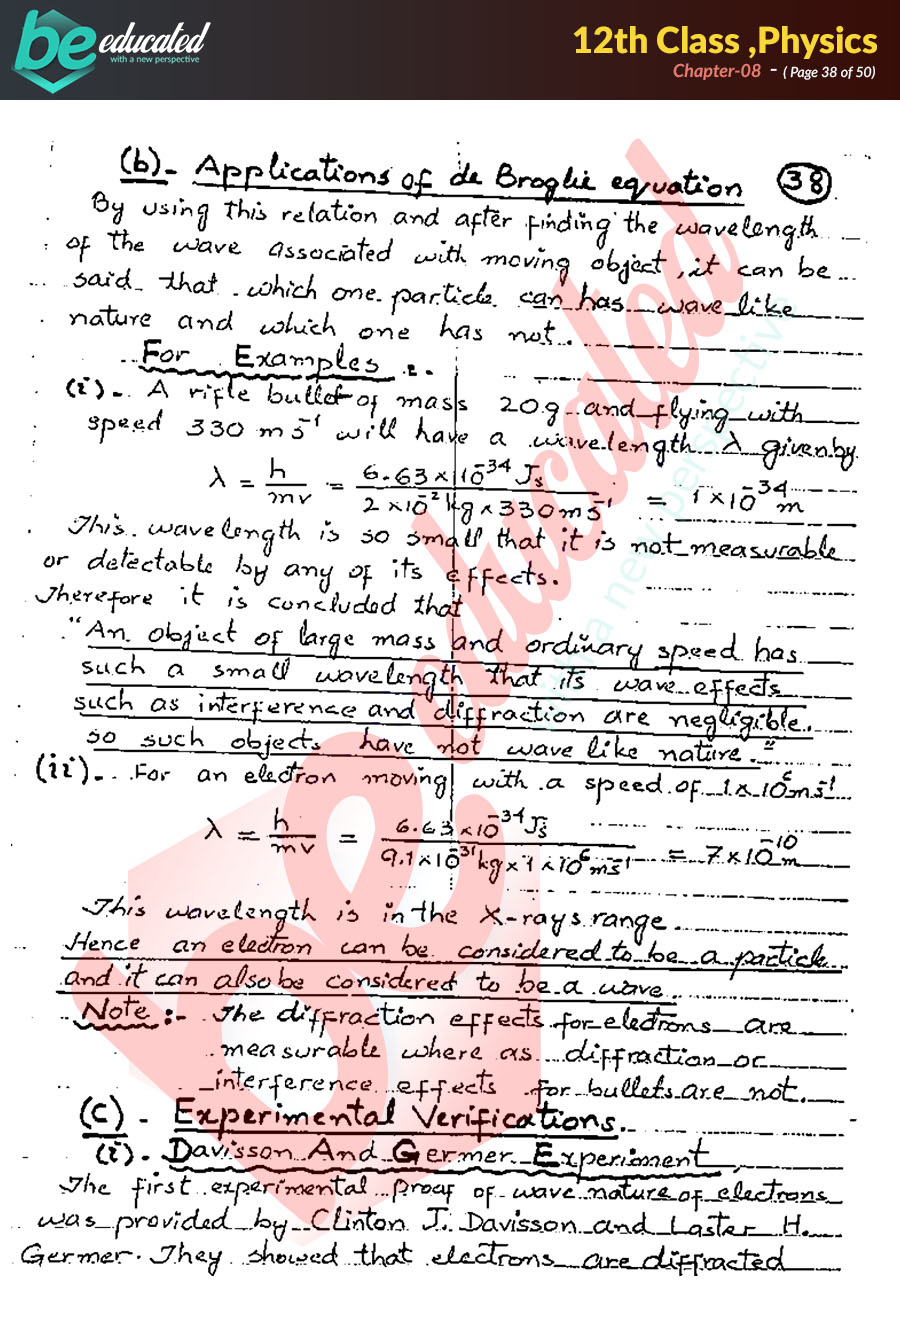 be educated
with a new perspective
12th Class ,Physics
Chapter-08 - ( Page 38 of 50)
(b)- Applications of de Broglie equation (38)
By using this relation and after finding the wavelength
of the wave associated with moving object, it can be
said that which one particle can has wave like
nature and which one has not.
For Examples :-
(i)- A rifle bullet of mass 20g and flying with
speed 330 ms⁻¹ will have a wavelength λ given by
λ = h/mv = 6.63 × 10⁻³⁴ Js / 2 × 10⁻² kg × 330 ms⁻¹ = 1 × 10⁻³⁴ m
This wavelength is so small that it is not measurable
or detectable by any of its effects.
Therefore it is concluded that
"An object of large mass and ordinary speed has
such a small wavelength that its wave effects
such as interference and diffraction are negligible.
so such objects have not wave like nature."
(ii)- For an electron moving with a speed of 1 × 10⁶ ms⁻¹
λ = h/mv = 6.63 × 10⁻³⁴ Js / 9.1 × 10⁻³¹ kg × 1 × 10⁶ ms⁻¹ = 7 × 10⁻¹⁰ m
This wavelength is in the X-rays range.
Hence an electron can be considered to be a particle
and it can also be considered to be a wave
Note :- The diffraction effects for electrons are
measurable where as diffraction or
interference effects for bullets are not.
(c) - Experimental Verifications.
(i)- Davisson And Germer Experiment
The first experimental proof of wave nature of electrons
was provided by Clinton J. Davisson and Laster H.
Germer. They showed that electrons are diffracted